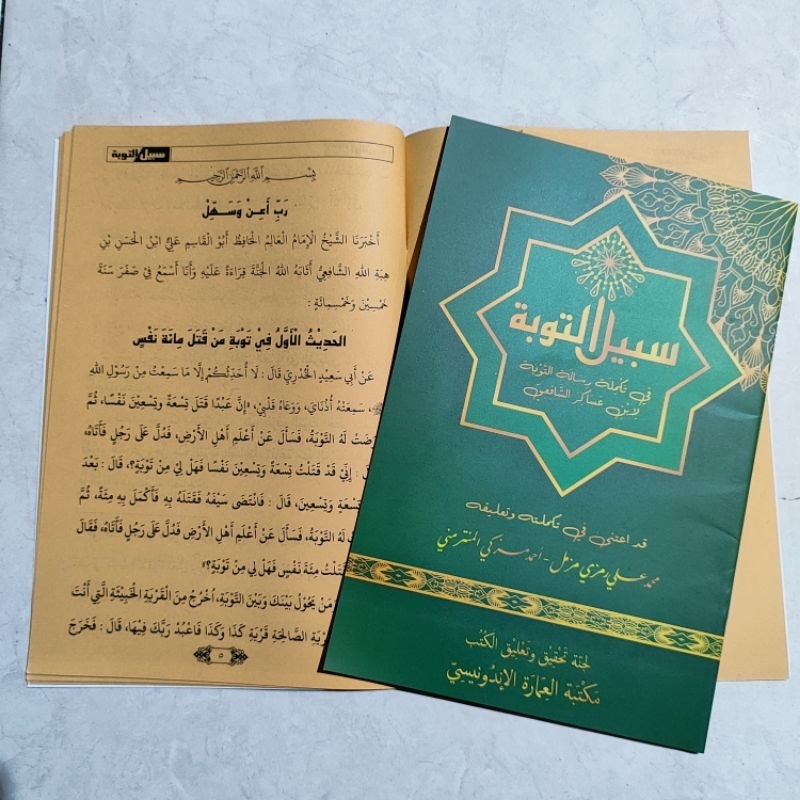 سبيل التوبة
بِسْمِ اللَّهِ الرَّحْمَنِ الرَّحِيمِ
رَبِّ أَعِنْ وَسَهِّلْ
أَخْبَرَنَا الشَّيْخُ الْإِمَامُ الْعَالِمُ الْحَافِظُ أَبُو الْقَاسِمِ عَلِيُّ ابْنُ الْحَسَنِ بْنِ
هِبَةِ اللهِ الشَّافِعِيُّ أَثَابَهُ اللهُ الْجَنَّةَ قِرَاءَةً عَلَيْهِ وَأَنَا أَسْمَعُ فِيْ صَفَرَ سَنَةَ
خَمْسِيْنَ وَخَمْسِمِائَةٍ :
الحَدِيْثُ الْأَوَّلُ فِيْ تَوْبَةِ مَنْ قَتَلَ مِائَةَ نَفْسٍ
عَنْ أَبِي سَعِيْدٍ الْخُدْرِيِّ قَالَ : لَا أُحَدِّثُكُمْ إِلَّا مَا سَمِعْتُ مِنْ رَسُوْلِ اللهِ
ﷺ، سَمِعَتْهُ أُذُنَايَ، وَوَعَاهُ قَلْبِيْ، «إِنَّ عَبْدًا قَتَلَ تِسْعَةً وَتِسْعِيْنَ نَفْسًا، ثُمَّ
لَهُ التَّوْبَةُ، فَسَأَلَ عَنْ أَعْلَمِ أَهْلِ الْأَرْضِ، فَدُلَّ عَلَى رَجُلٍ فَأَتَاهُ،
: إِنِّيْ قَدْ قَتَلْتُ تِسْعَةً وَتِسْعِيْنَ نَفْسًا فَهَلْ لِيْ مِنْ تَوْبَةٍ؟، قَالَ : بَعْدَ
تِسْعَةٍ وَتِسْعِيْنَ، قَالَ : فَانْتَضَى سَيْفَهُ فَقَتَلَهُ بِهِ فَأَكْمَلَ بِهِ مِئَةً، ثُمَّ
لَهُ التَّوْبَةُ، فَسَأَلَ عَنْ أَعْلَمِ أَهْلِ الْأَرْضِ فَدُلَّ عَلَى رَجُلٍ فَأَتَاهُ، فَقَالَ
قَتَلْتُ مِئَةَ نَفْسٍ فَهَلْ لِيْ مِنْ تَوْبَةٍ؟»
مَنْ يَحُوْلُ بَيْنَكَ وَبَيْنَ التَّوْبَةِ، اُخْرُجْ مِنَ الْقَرْيَةِ الْخَبِيْثَةِ الَّتِيْ أَنْتَ
الصَّالِحَةِ قَرْيَةِ كَذَا وَكَذَا فَاعْبُدْ رَبَّكَ فِيْهَا، قَالَ : فَخَرَجَ
٥
سبيل التوبة
في تكملة رسالة التوبة
لابن عساكر الشافعي
قد اعتنى في تكملته وتعليقه
محمد علي رمزي مزمل - أحمد
لجنة تحقيق وتعليق الكتب
مكتبة العمارة الإندونيسيّ